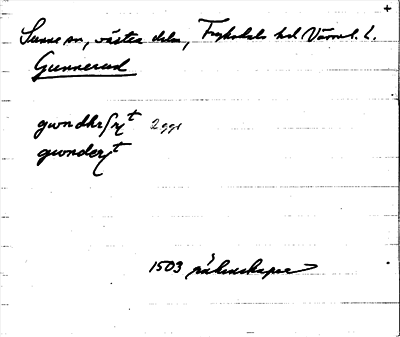 +
Sunne sn, västra delen, Fryksdals hd Värml. l.
Gunnerud
gwndhr/yt 2 ggr
gwnderyt
1503 räkenskaper